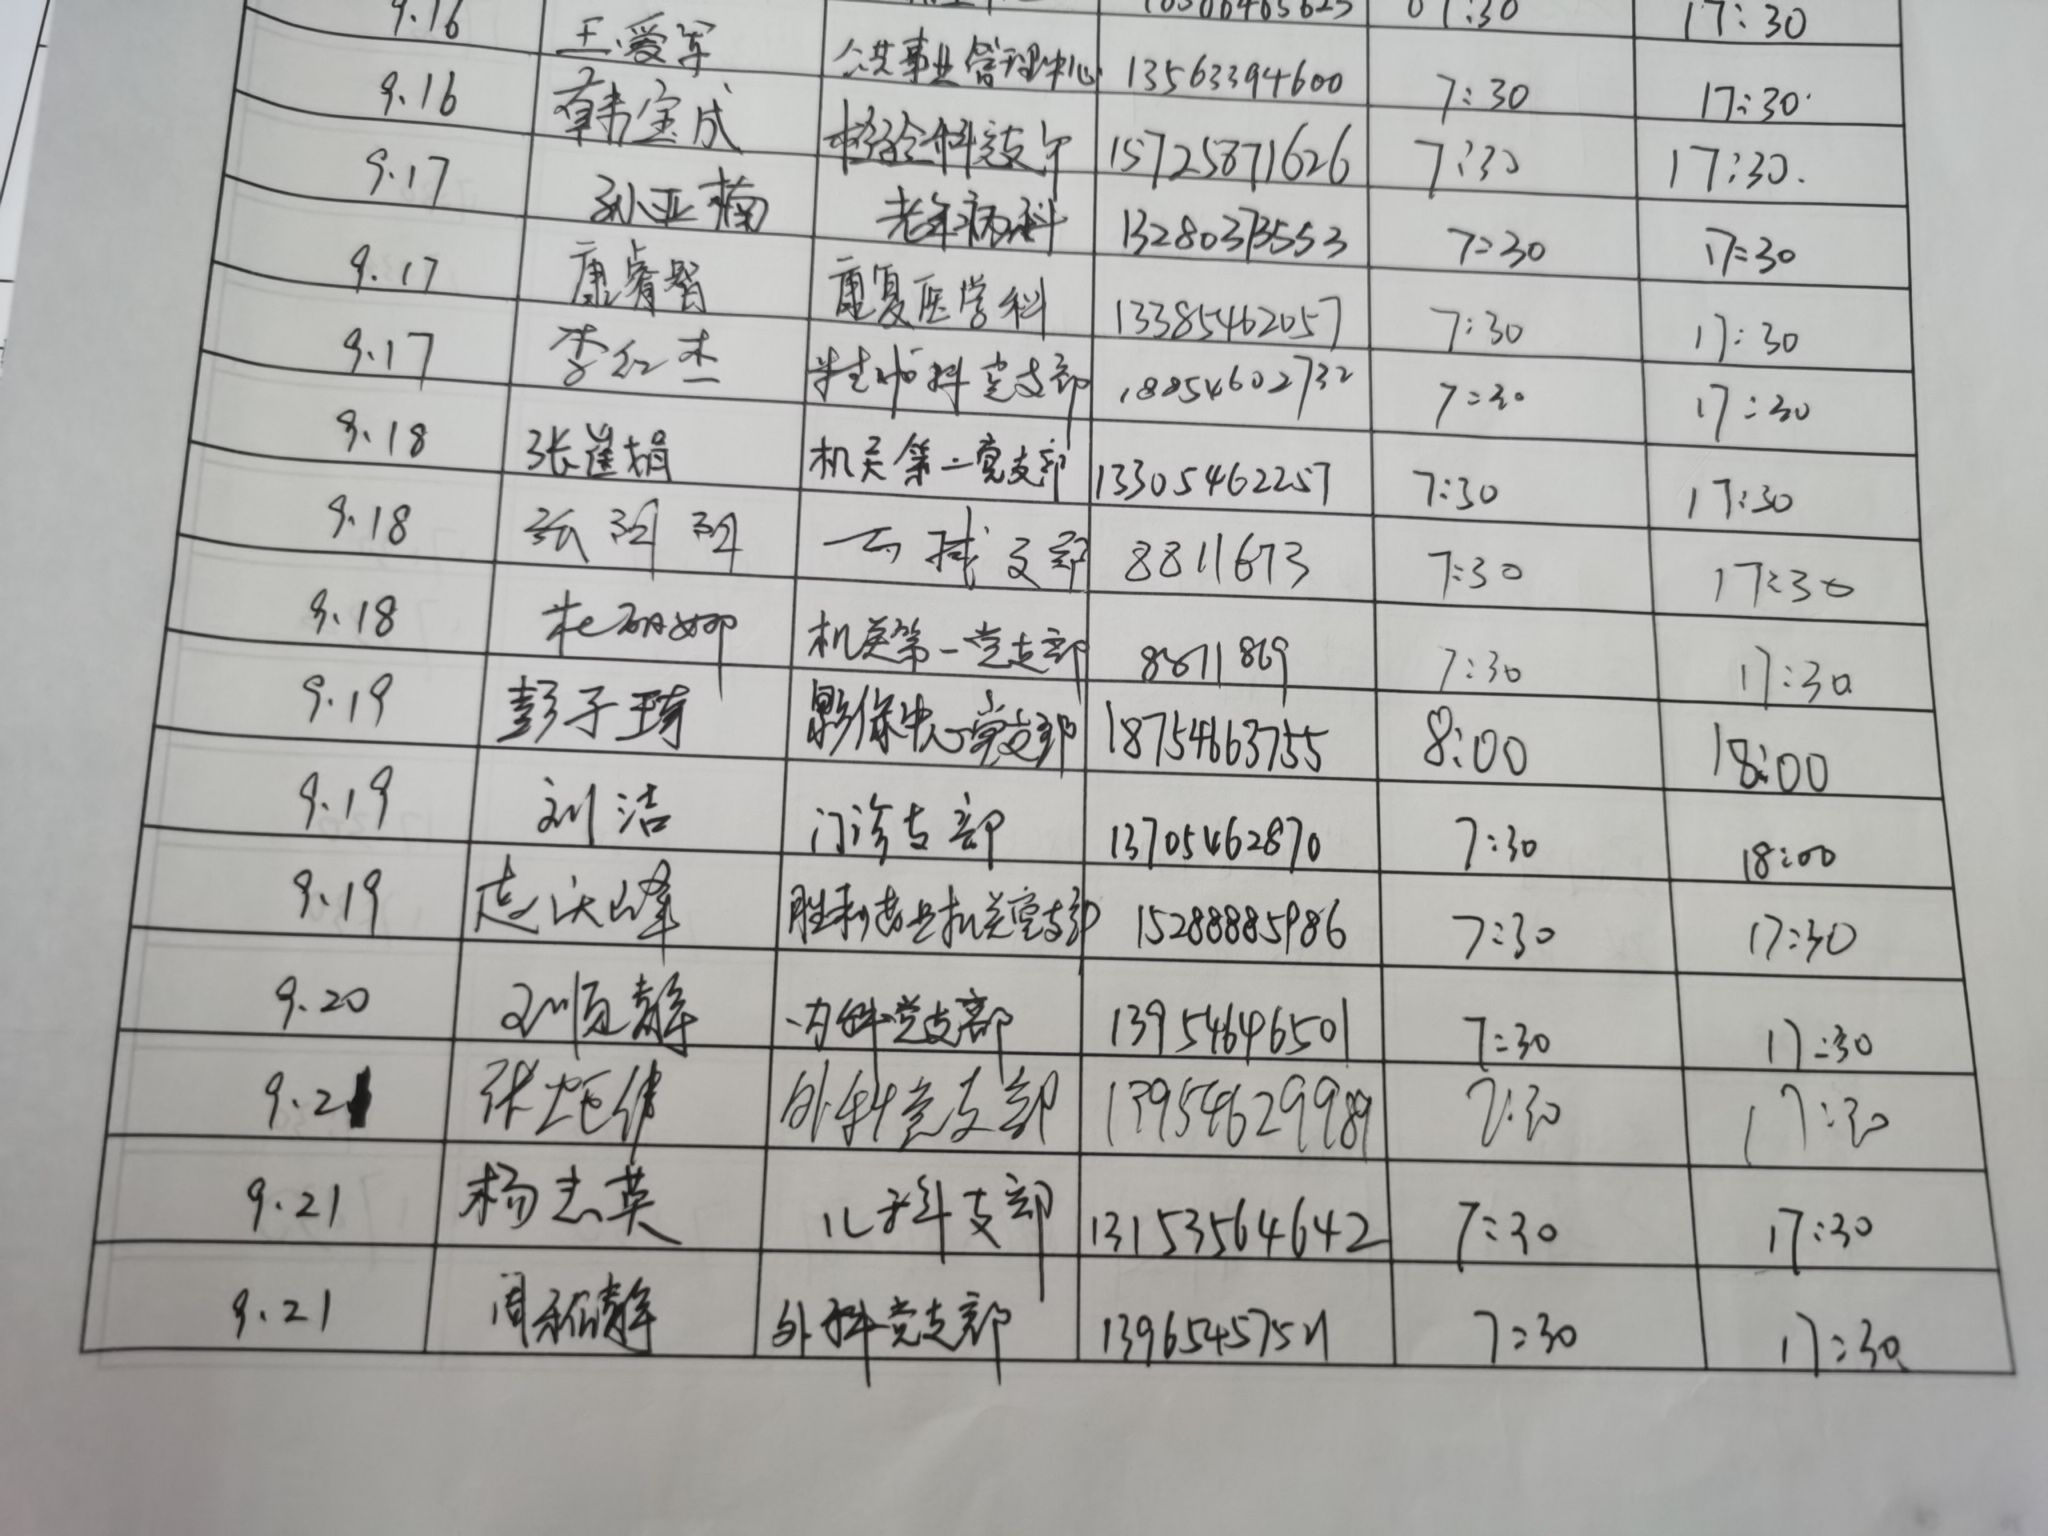 9.16 王爱军 公共事业管理中心 13563394600 7:30 17:30
9.16 韩宝成 检验科支部 15725871626 7:30 17:30
9.17 孙亚楠 老年病科 13280373553 7:30 17:30
9.17 康睿智 康复医学科 13385462057 7:30 17:30
9.17 李红杰 党支部 18854602732 7:30 17:30
9.18 张崔娟 机关第一党支部 13305462257 7:30 17:30
9.18 张 支部 8811673 7:30 17:30
9.18 杜丽娜 机关第一党支部 8871869 7:30 17:30
9.19 彭子琦 影像中心党支部 18754663755 8:00 18:00
9.19 刘洁 门诊支部 13705462870 7:30 18:00
9.19 赵庆峰 党支部 15288885986 7:30 17:30
9.20 刘顺静 内科党支部 13954646501 7:30 17:30
9.21 张炬伟 外科党支部 13954629989 7:30 17:30
9.21 杨志英 儿科支部 13153564642 7:30 17:30
9.21 周 外科党支部 7:30 17:30